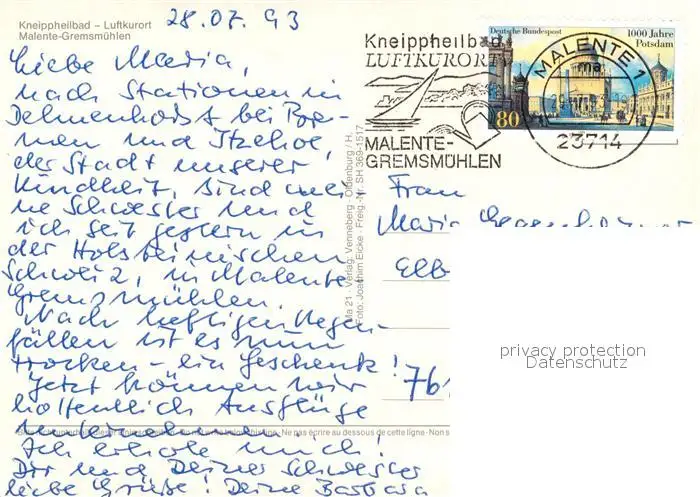 Kneippheilbad – Luftkurort
Malente-Gremsmühlen
28.07.93
Liebe Maria,
nach Stationen in
Delmenhorst bei Bre-
men und Itzehoe,
der Stadt unserer
Kindheit, sind mei-
ne Schwester und
ich seit gestern in
der Holsteinischen
Schweiz, in Malente
Gremsmühlen.
Nach heftigen Regen-
fällen ist es nun
trocken – ein Geschenk!
Jetzt können wir
hoffentlich Ausflüge
unternehmen.
Ich erhole mich!
Dir und Deiner Schwester
liebe Grüße! Deine Barbara
Ma 21 - Verlag: Venneberg - Oldenburg / H.
Foto: Joachim Eicke - Freig.-Nr. SH 369-1517
Kneippheilbad
LUFTKURORT
MALENTE-
GREMSMÜHLEN
Deutsche Bundespost
1000 Jahre
Potsdam
80
MALENTE 1
ma
23714
Frau
Maria
Elb
76
privacy protection
Datenschutz
Ne pas écrire au dessous de cette ligne